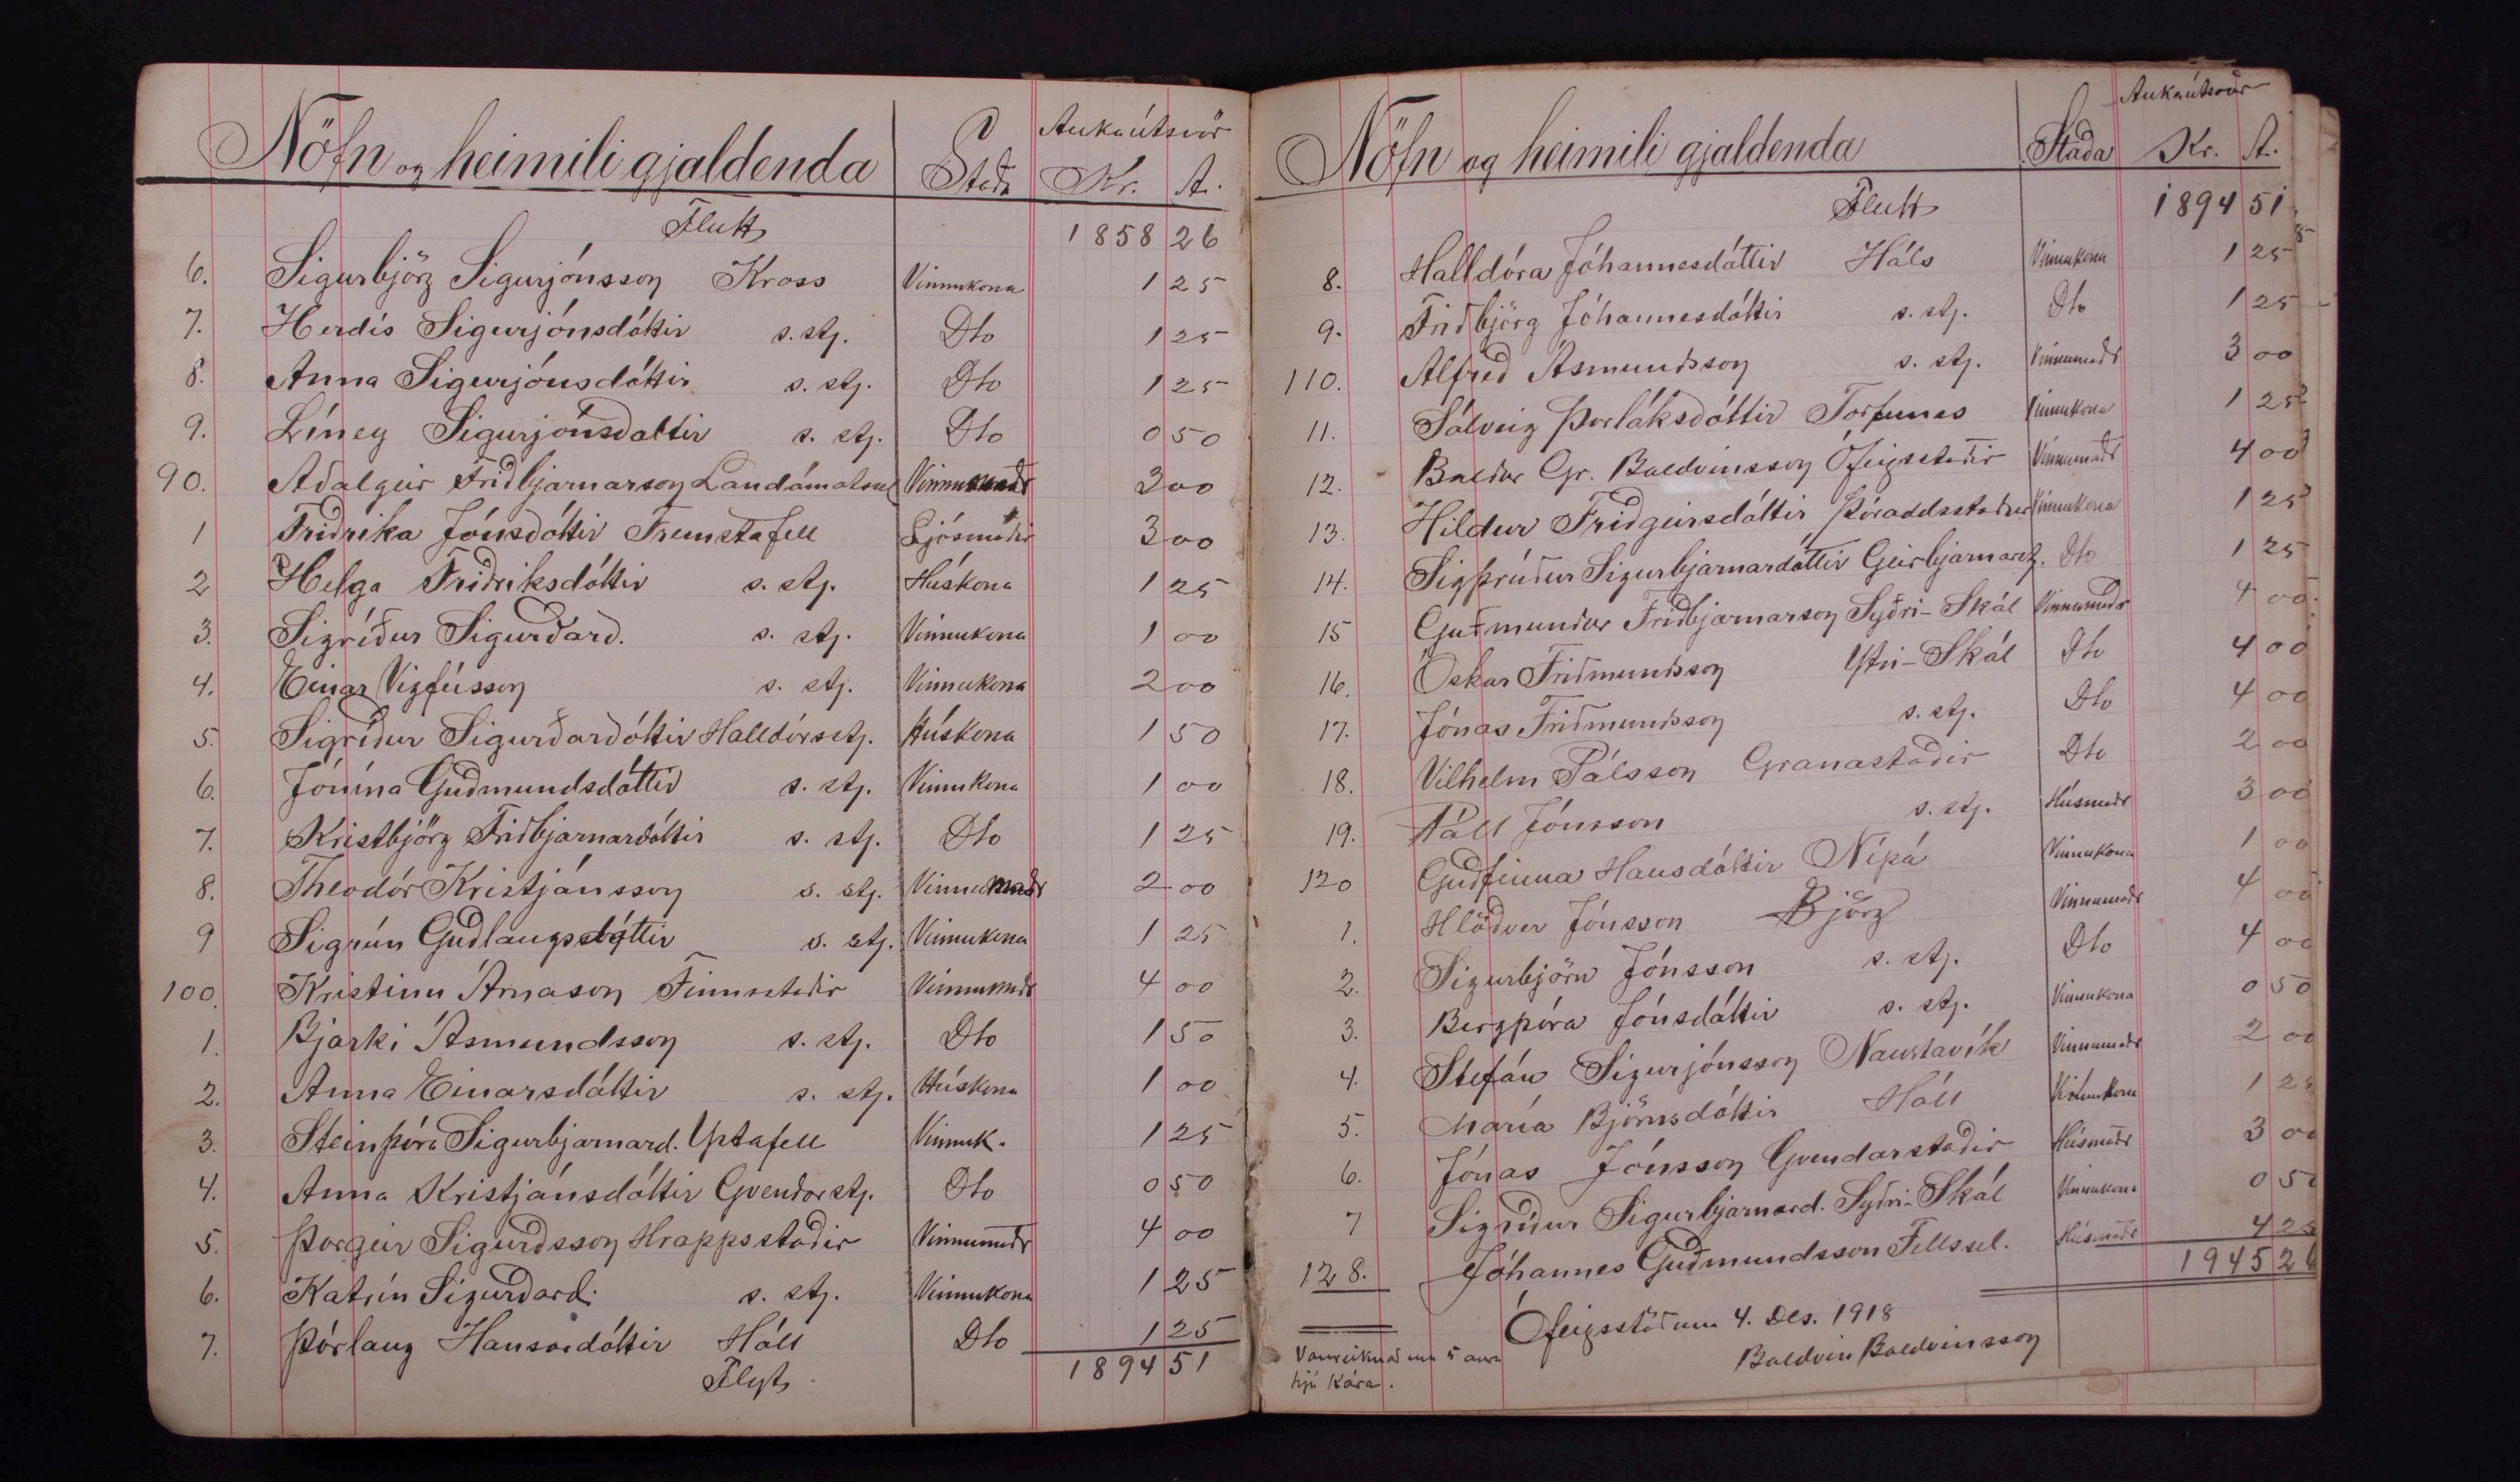 Aukaútsvör
Nöfn og heimili gjaldenda Staða Kr. A.
Flutt 1858 26
6. Sigurbjörg Sigurjónsson Kross Vinnukona 1 25
7. Herdís Sigurjónsdóttir s. stj. Dto 1 25
8. Anna Sigurjónsdóttir s. stj. Dto 1 25
9. Líney Sigurjónsdóttir s. stj. Dto 0 50
90. Aðalgeir Friðbjarnarson Landámótssel Vinnumaðr 3 00
1 Friðrika Jónsdóttir Fremstafell Ljósmóðir 3 00
2 Helga Friðriksdóttir s. stj. Húskona 1 25
3. Sigríður Sigurðard. s. stj. Vinnukona 1 00
4. Einar Vigfússon s. stj. Vinnukona 2 00
5. Sigríður Sigurðardóttir Halldórsstj. Húskona 1 50
6. Jónína Guðmundsdóttir s. stj. Vinnukona 1 00
7. Kristbjörg Friðbjarnardóttir s. stj. Dto 1 25
8. Theodór Kristjánsson s. stj. Vinnumaðr 2 00
9 Sigrún Guðlaugsdóttir s. stj. Vinnukona 1 25
100. Kristinn Árnason Finnsstaðir Vinnumaðr 4 00
1. Bjarki Ásmundsson s. stj. Dto 1 50
2. Anna Einarsdóttir s. stj. Húskona 1 00
3. Steinþóra Sigurbjarnard. Ystafell Vinnuk. 1 25
4. Anna Kristjánsdóttir Gvendarstj. Dto 0 50
5. Þorgeir Sigurðsson Hrappsstaðir Vinnumaðr 4 00
6. Katrín Sigurðard. s. stj. Vinnukona 1 25
7. Þórlaug Hansdóttir Háll Dto 1 25
Flyt 1894 51
Aukaútsvör
Nöfn og heimili gjaldenda Staða Kr. A.
Flutt 1894 51
8. Halldóra Jóhannesdóttir Háls Vinnukona 1 25
9. Friðbjörg Jóhannesdóttir s. stj. Dto 1 25
110. Alfreð Ásmundsson s. stj. Vinnumaðr 3 00
11. Sólveig Þorláksdóttir Torfunes Vinnukona 1 25
12. Baldur Gr. Baldvinsson Ófeigsstaðir Vinnumaðr 4 00
13. Hildur Friðgeirsdóttir Þóroddsstaður Vinnukona 1 25
14. Sigþrúður Sigurbjarnardóttir Geirbjarnarst. Dto 1 25
15 Guðmundur Friðbjarnarson Syðri-Skál Vinnumaðr 4 00
16. Óskar Friðmundsson Ytri-Skál Dto 4 00
17. Jónas Friðmundsson s. stj. Dto 4 00
18. Vilhelm Pálsson Granastaðir Dto 2 00
19. Páll Jónsson s. stj. Húsmaðr 3 00
120 Guðfinna Hansdóttir Nípá Vinnukona 1 00
1. Hlöðver Jónsson Björg Vinnumaðr 4 00
2. Sigurbjörn Jónsson s. stj. Dto 4 00
3. Bergþóra Jónsdóttir s. stj. Vinnukona 0 50
4. Stefán Sigurjónsson Naustavík Vinnumaðr 2 00
5. María Björnsdóttir Háll Vinnukona 1 25
6. Jónas Jónsson Gvendarstaðir Húsmaðr 3 00
7 Sigríður Sigurbjarnard. Syðri-Skál Vinnukona 0 50
128. Jóhannes Guðmundsson Fellssel. Húsmaðr 4 25
1945 26
Ófeigsstöðum 4. Des. 1918
Baldvin Baldvinsson
Vanreiknað um 5 aura
hjá Kára.